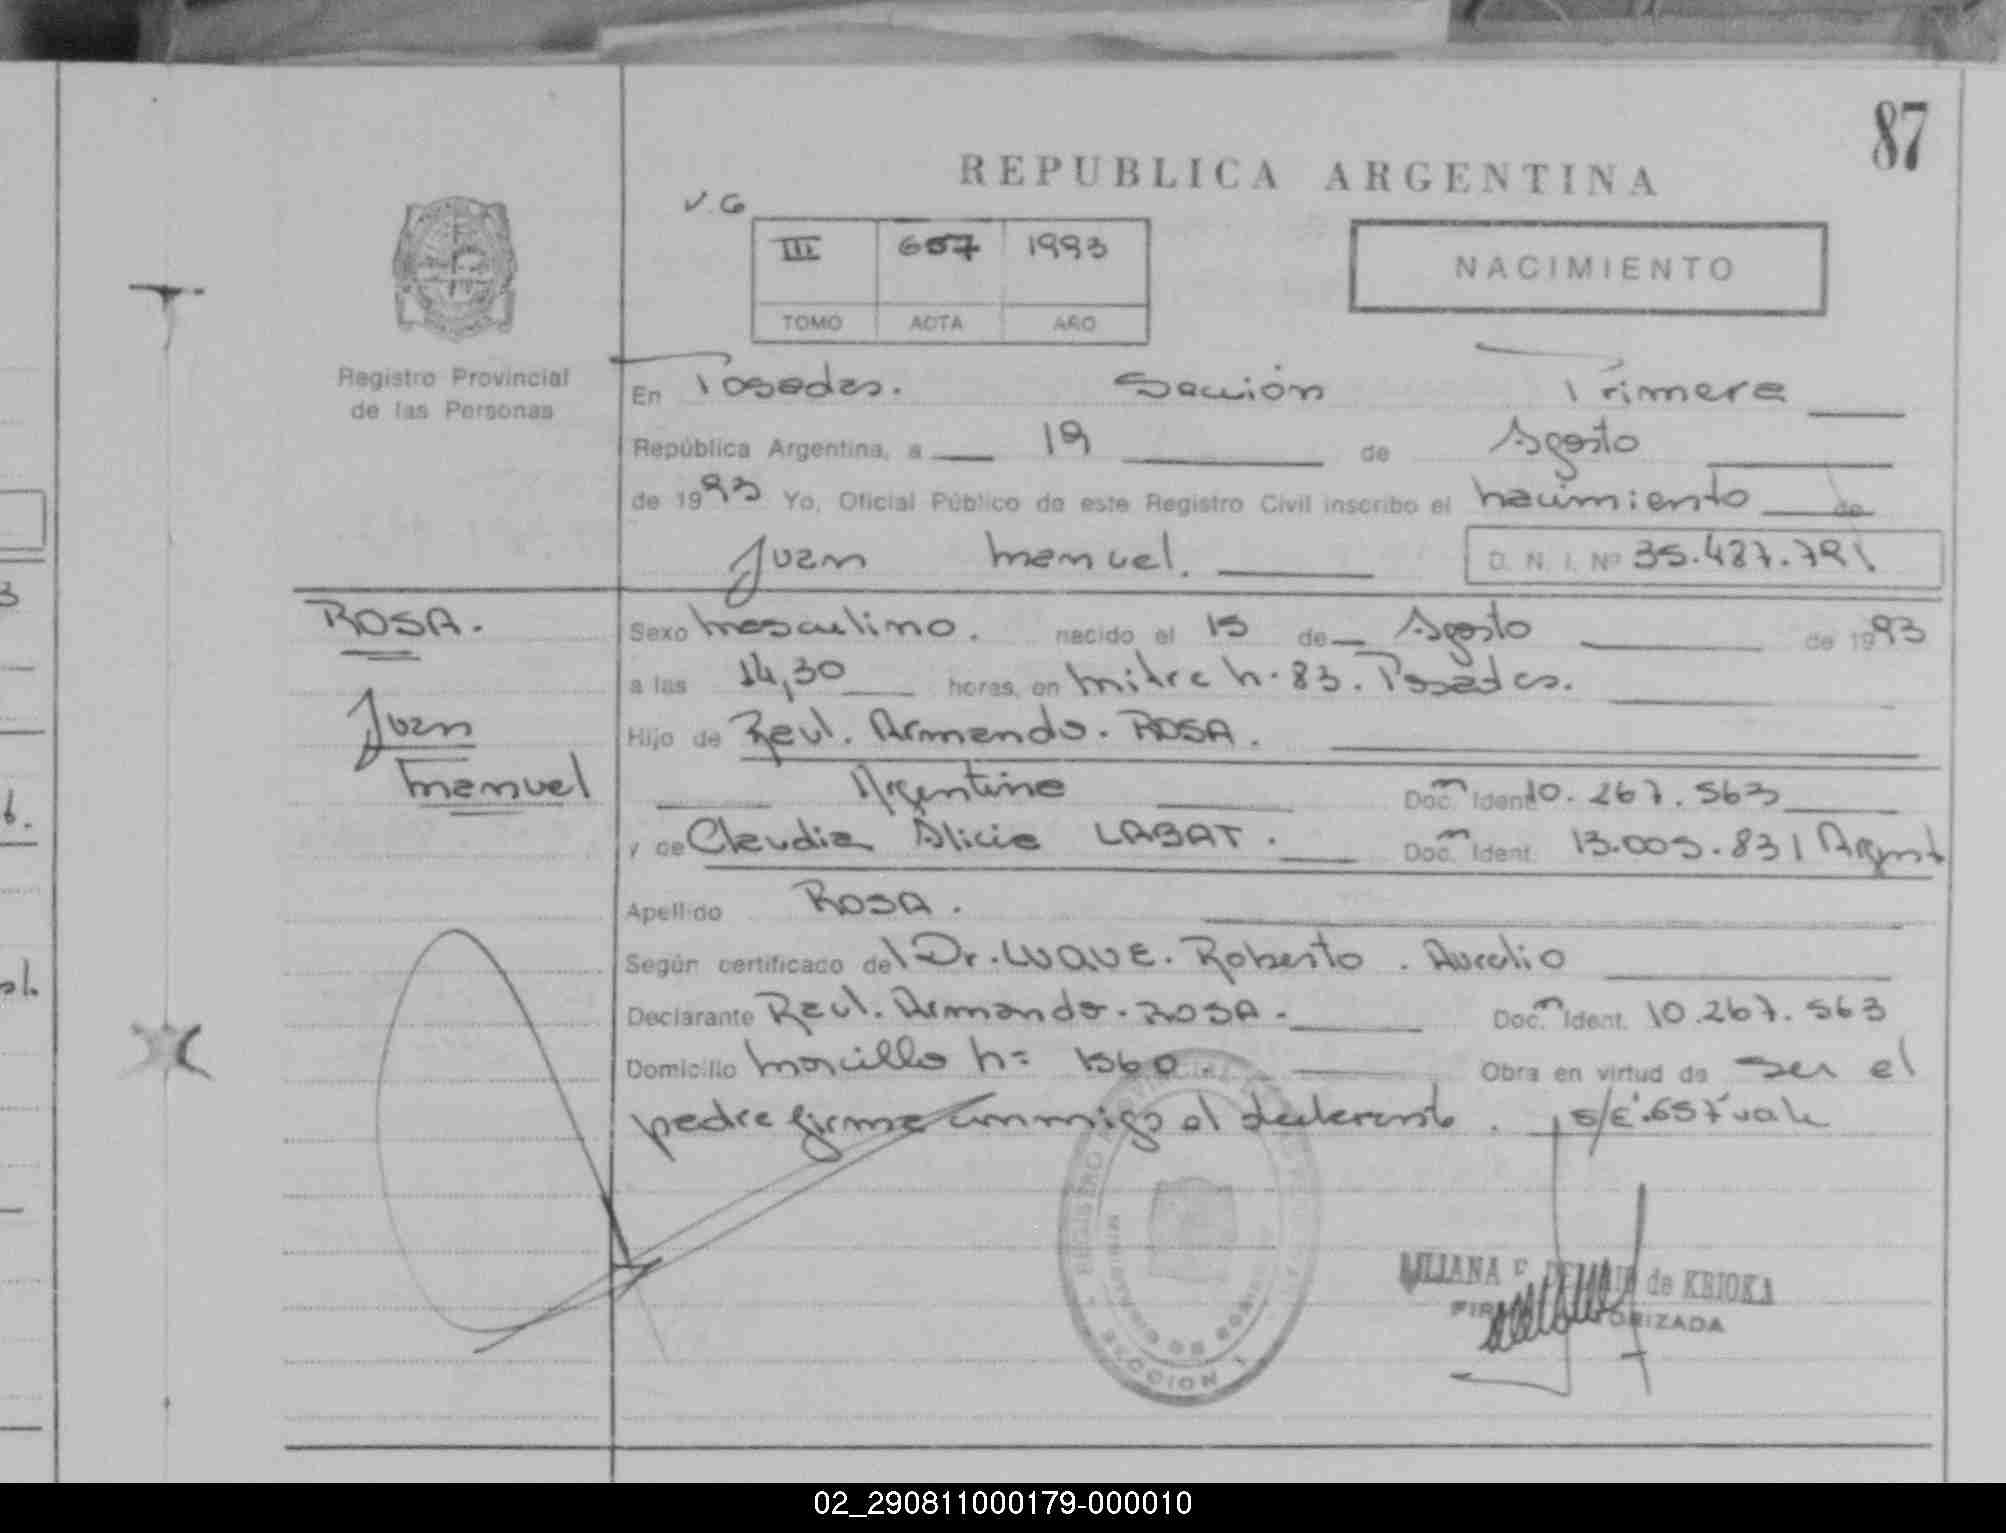 87
REPUBLICA ARGENTINA
V.G
III 657 1993
TOMO ACTA AÑO
NACIMIENTO
Registro Provincial
de las Personas
En Posadas. Sección Primera
República Argentina, a 19 de Agosto
de 1993 Yo, Oficial Público de este Registro Civil inscribo el nacimiento de
Juan Manuel. D. N. I. Nº 35.487.791
ROSA.
Juan
Manuel
Sexo Masculino. nacido el 15 de Agosto de 1993
a las 14,30 horas, en Mitre N. 83. Posadas.
Hijo de Raul. Armando. ROSA.
Argentino Doc. Ident. 10.267.563
y de Claudia Alicia LABAT. Doc. Ident. 13.005.831 Argent
Apellido ROSA.
Según certificado del Dr. LUQUE. Roberto. Aurelio
Declarante Raul. Armando. ROSA. Doc. Ident. 10.267.563
Domicilio N= 1560 Obra en virtud de ser el
padre firma conmigo el declarante. s/E.657 vale
REGISTRO PROVINCIAL
SECCION 1
LILIANA de KRIOKA
FIRMA AUTORIZADA
02_290811000179-000010